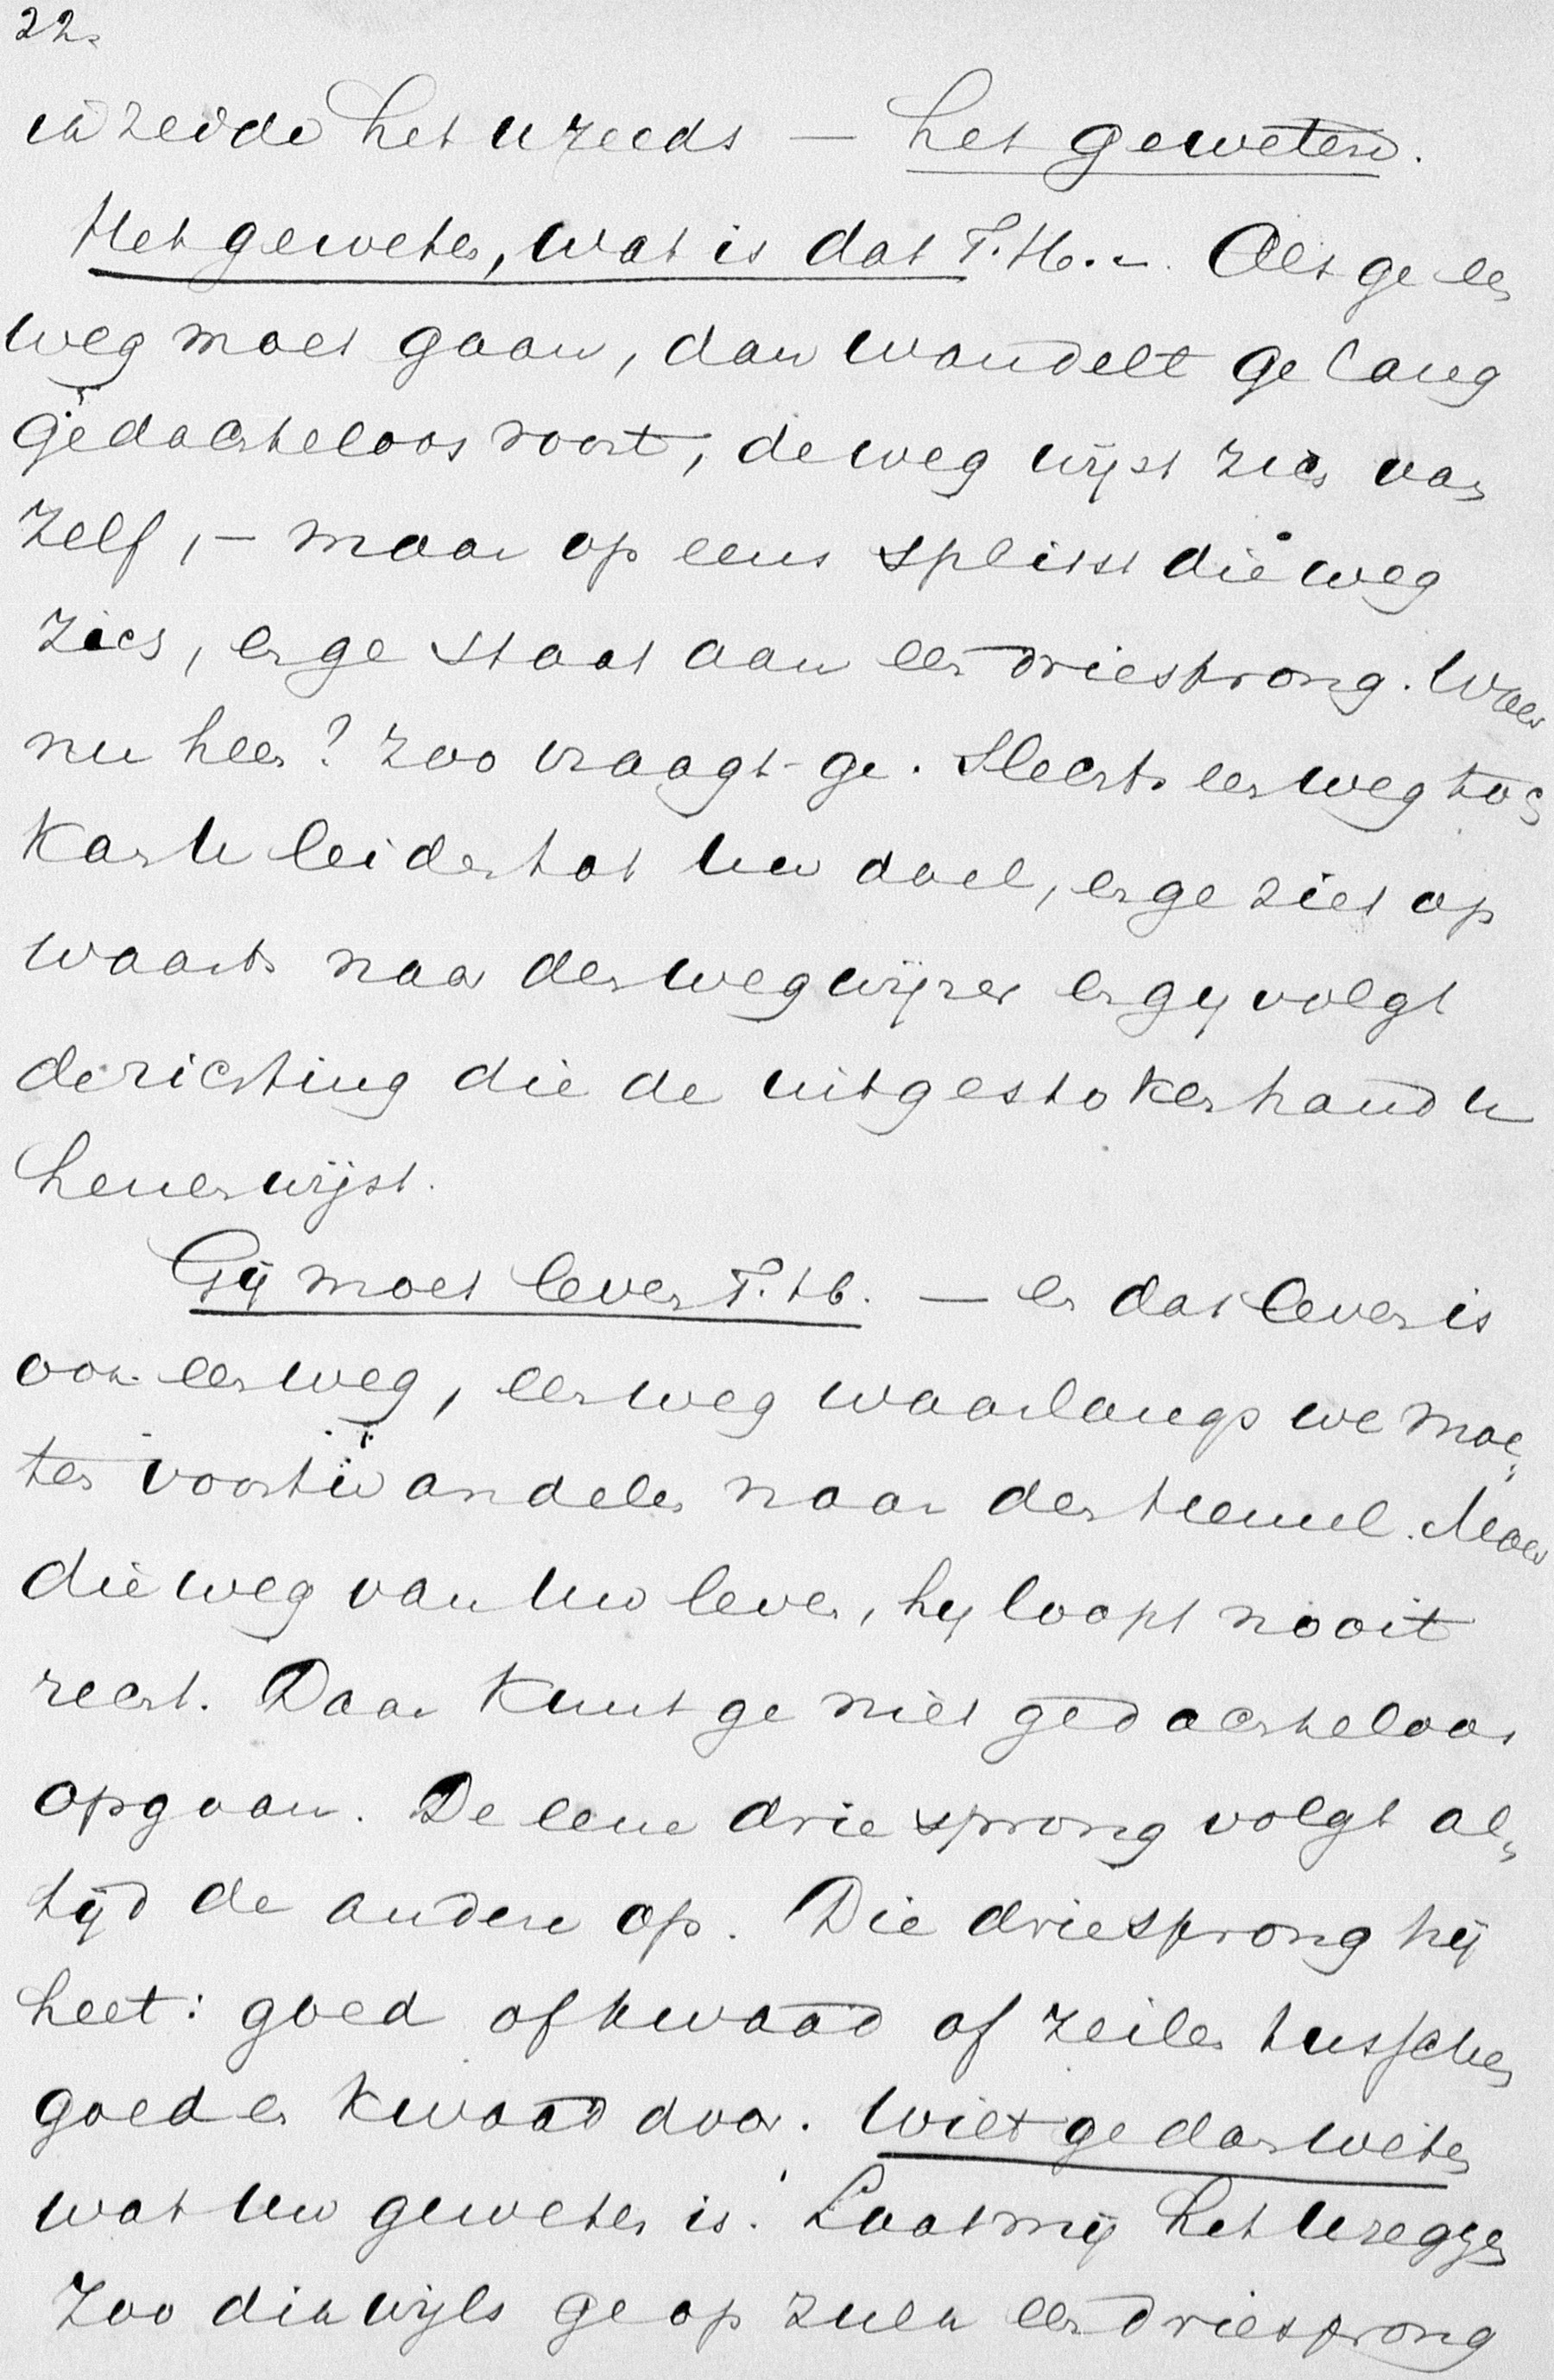 22.
ik zeide het u reeds — het geweten.
Het geweten, wat is dat T.H. -. Als ge een
weg moet gaan, dan wandelt ge lang
gedachteloos voort, de weg wijst zich van
zelf, - maar op eens splitst die weg
zich, en ge staat aan een driesprong. Waar
nu heen? zoo vraagt ge. Slechts een weg toch
kan U leiden tot Uw doel, en ge ziet op
waarts naar den wegwijzer en gy volgt
de richting die de uitgestoken hand U
henen wijst.
Gij moet leven T.H. — en dat leven is
ook een weg, een weg waarlangs we moe-
ten voortwandelen naar den hemel. Maar
die weg van Uw leven, hy loopt nooit
recht. Daar kunt ge niet gedachteloos
opgaan. De eene driesprong volgt al-
tijd de andere op. Die driesprong hij
heet: goed of kwaad of zeilen tusschen
goed en kwaad door. Wilt ge dan weten
wat Uw geweten is. Laat mij het U zeggen
Zoo dikwijls ge op zulk een driesprong